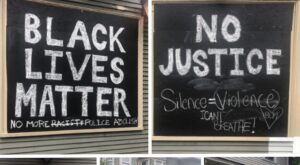 BLACK
LIVES
MATTER
NO MORE RACIST POLICE ABOLISH
NO
JUSTICE
Silence = Violence
I CAN'T
BREATHE!